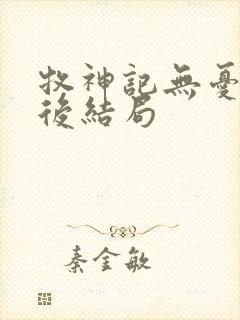 牧神記無憂
後結局
秦金敏